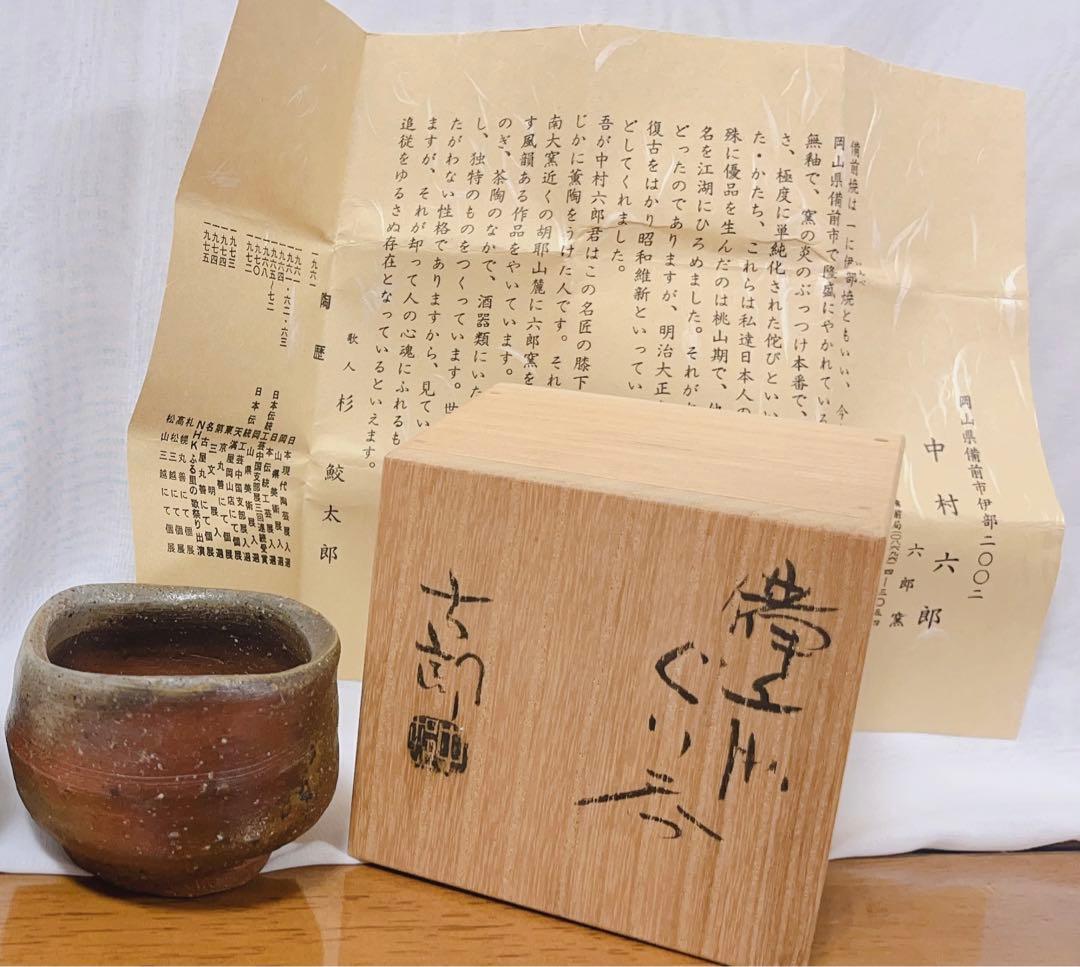 岡山県備前市伊部二〇〇二
中村六郎
六郎窯
備前焼は一に伊部焼ともいい、今
岡山県備前市で隆盛にやかれている
無釉で、窯の炎のぶっつけ本番で、
さ、極度に単純化された侘びといい
た・かたち、これらは私達日本人の
殊に優品を生んだのは桃山期で、
名を江湖にひろめました。それが
どったのでありますが、明治大正
復古をはかり昭和維新といってい
としてくれました。
吾が中村六郎君はこの名匠の膝下
じかに薫陶をうけた人です。それ
南大窯近くの胡耶山麓に六郎窯を
す風韻ある作品をやいています。
のぎ、茶陶のなかで、酒器類にいた
し、独特のものをつくっています。世
たがわない性格でありますから、見てい
ますが、それが却って人の心魂にふれるも
追従をゆるさぬ存在となっているといえます。
歌人 杉鮫太郎
陶歴
一九六一 日本現代陶芸展入選
一九六一・六二・六三 岡山県美術展入選
一九六四 日本伝統工芸展入選
一九六五~七二 日本伝統工芸中国支部展三回連続受賞
一九六八 岡山県美術展入選
一九七〇 日本伝統工芸中国支部展入選
一九七二 天満屋岡山店にて個展
東京丸善にて個展
第三文明展入選
一九七三 名古屋丸善にて個展
一九七四 NHKふる里の歌祭り出演
一九七四 札幌丸善にて個展
一九七五 高松三越にて個展
松山三越にて個展
備前
ぐい呑
六郎